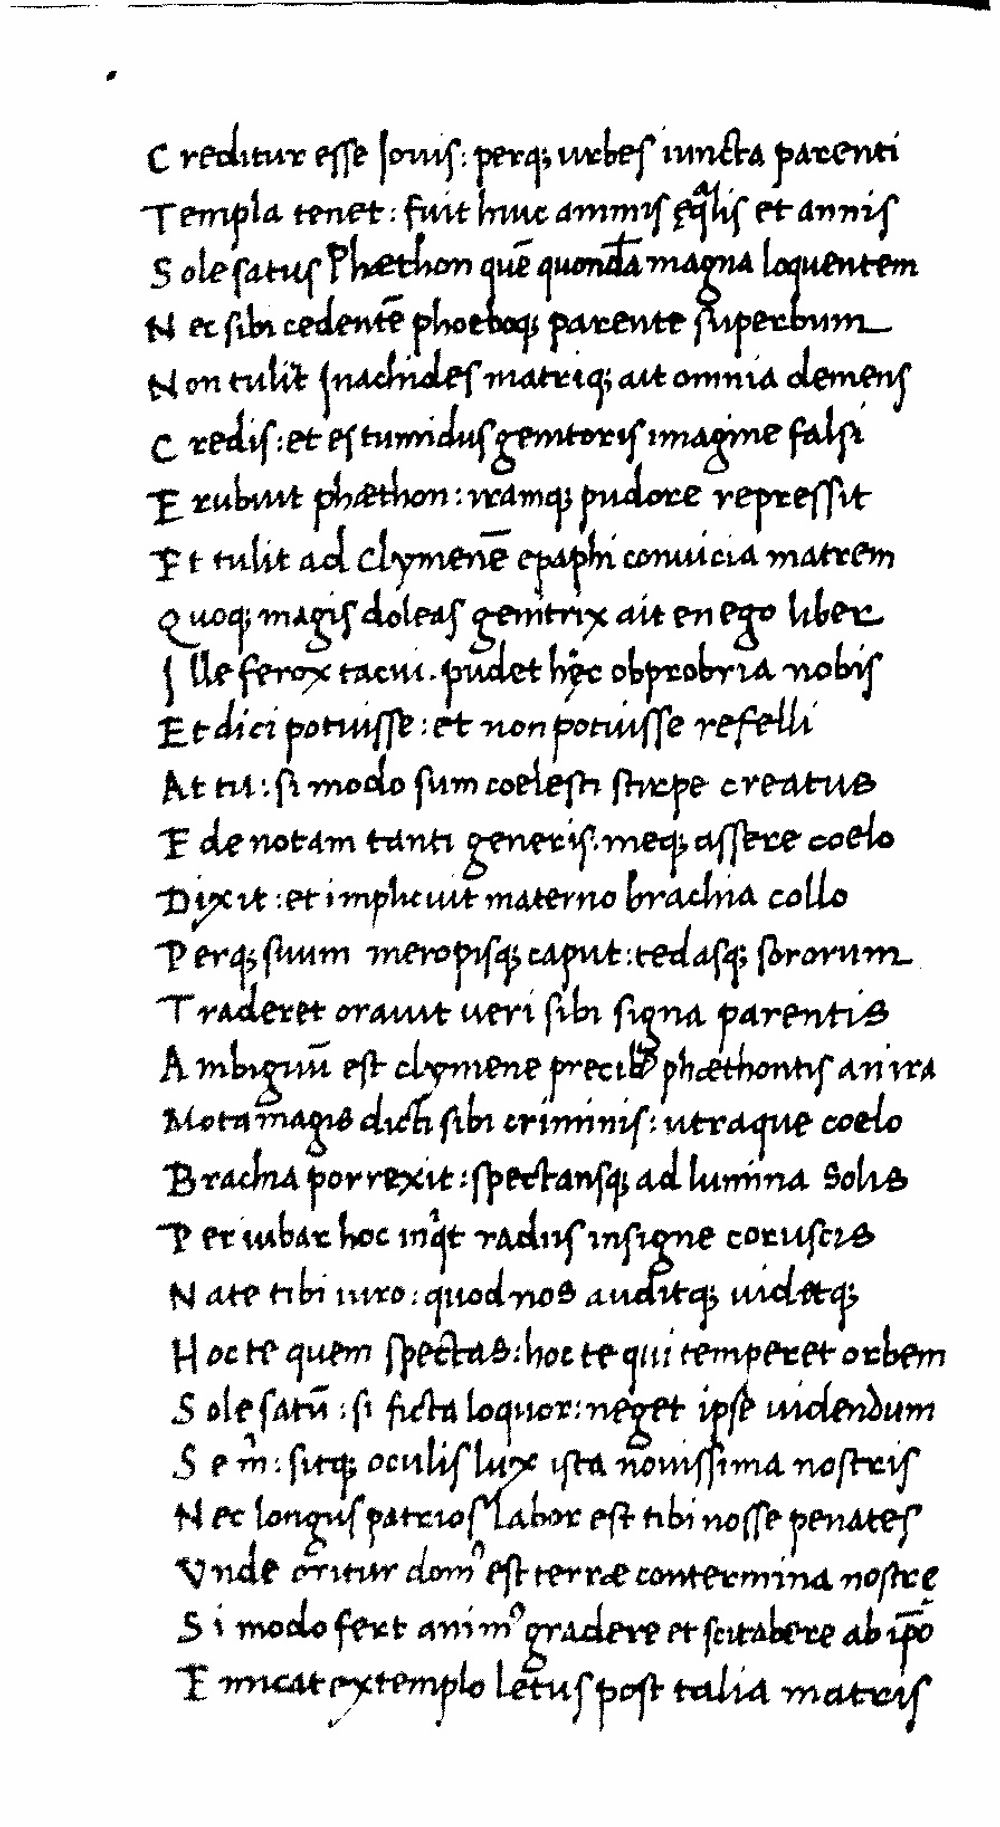 C reditur esse Iouis: perq; urbes iuncta parenti
T empla tenet: fuit huic animis ęq̃lis et annis
S ole satus Phæthon quē quondã magna loquentem
N ec sibi cedentē phoeboq; parente superbum
N on tulit Inachides matriq; ait omnia demens
C redis: et es tumidus genitoris imagine falsi
E rubuit phæthon: iramq; pudore repressit
E t tulit ad Clymenē epaphi conuicia matrem
Q uoq; magis doleas genitrix ait en ego liber
I lle ferox tacui. pudet hęc obprobria nobis
E t dici potuisse: et non potuisse refelli
A t tu: si modo sum coelesti stirpe creatus
E de notam tanti generis: meq; assere coelo
D ixit: et implicuit materno brachia collo
P erq; suum meropisq; caput: tedasq; sororum
T raderet orauit ueri sibi signa parentis
A mbiguū est clymene precib9 phæthontis an ira
M ota magis dicti sibi criminis: utraque coelo
B rachia porrexit: spectansq; ad lumina Solis
P er iubar hoc inqͥt radiis insigne coruscis
N ate tibi iuro: quod nos auditq; uidetq;
H oc te quem spectas: hoc te qui temperet orbem
S ole satū: si ficta loquor: neget ipse uidendum
S e mͥ: sitq; oculis lux ista nouissima nostris
N ec longus patrios labor est tibi nosse penates
V nde oritur dom9 est terræ contermina nostrę
S i modo fert anim9 gradere et scitabere ab ip̄o
E micat extemplo letus post talia matris